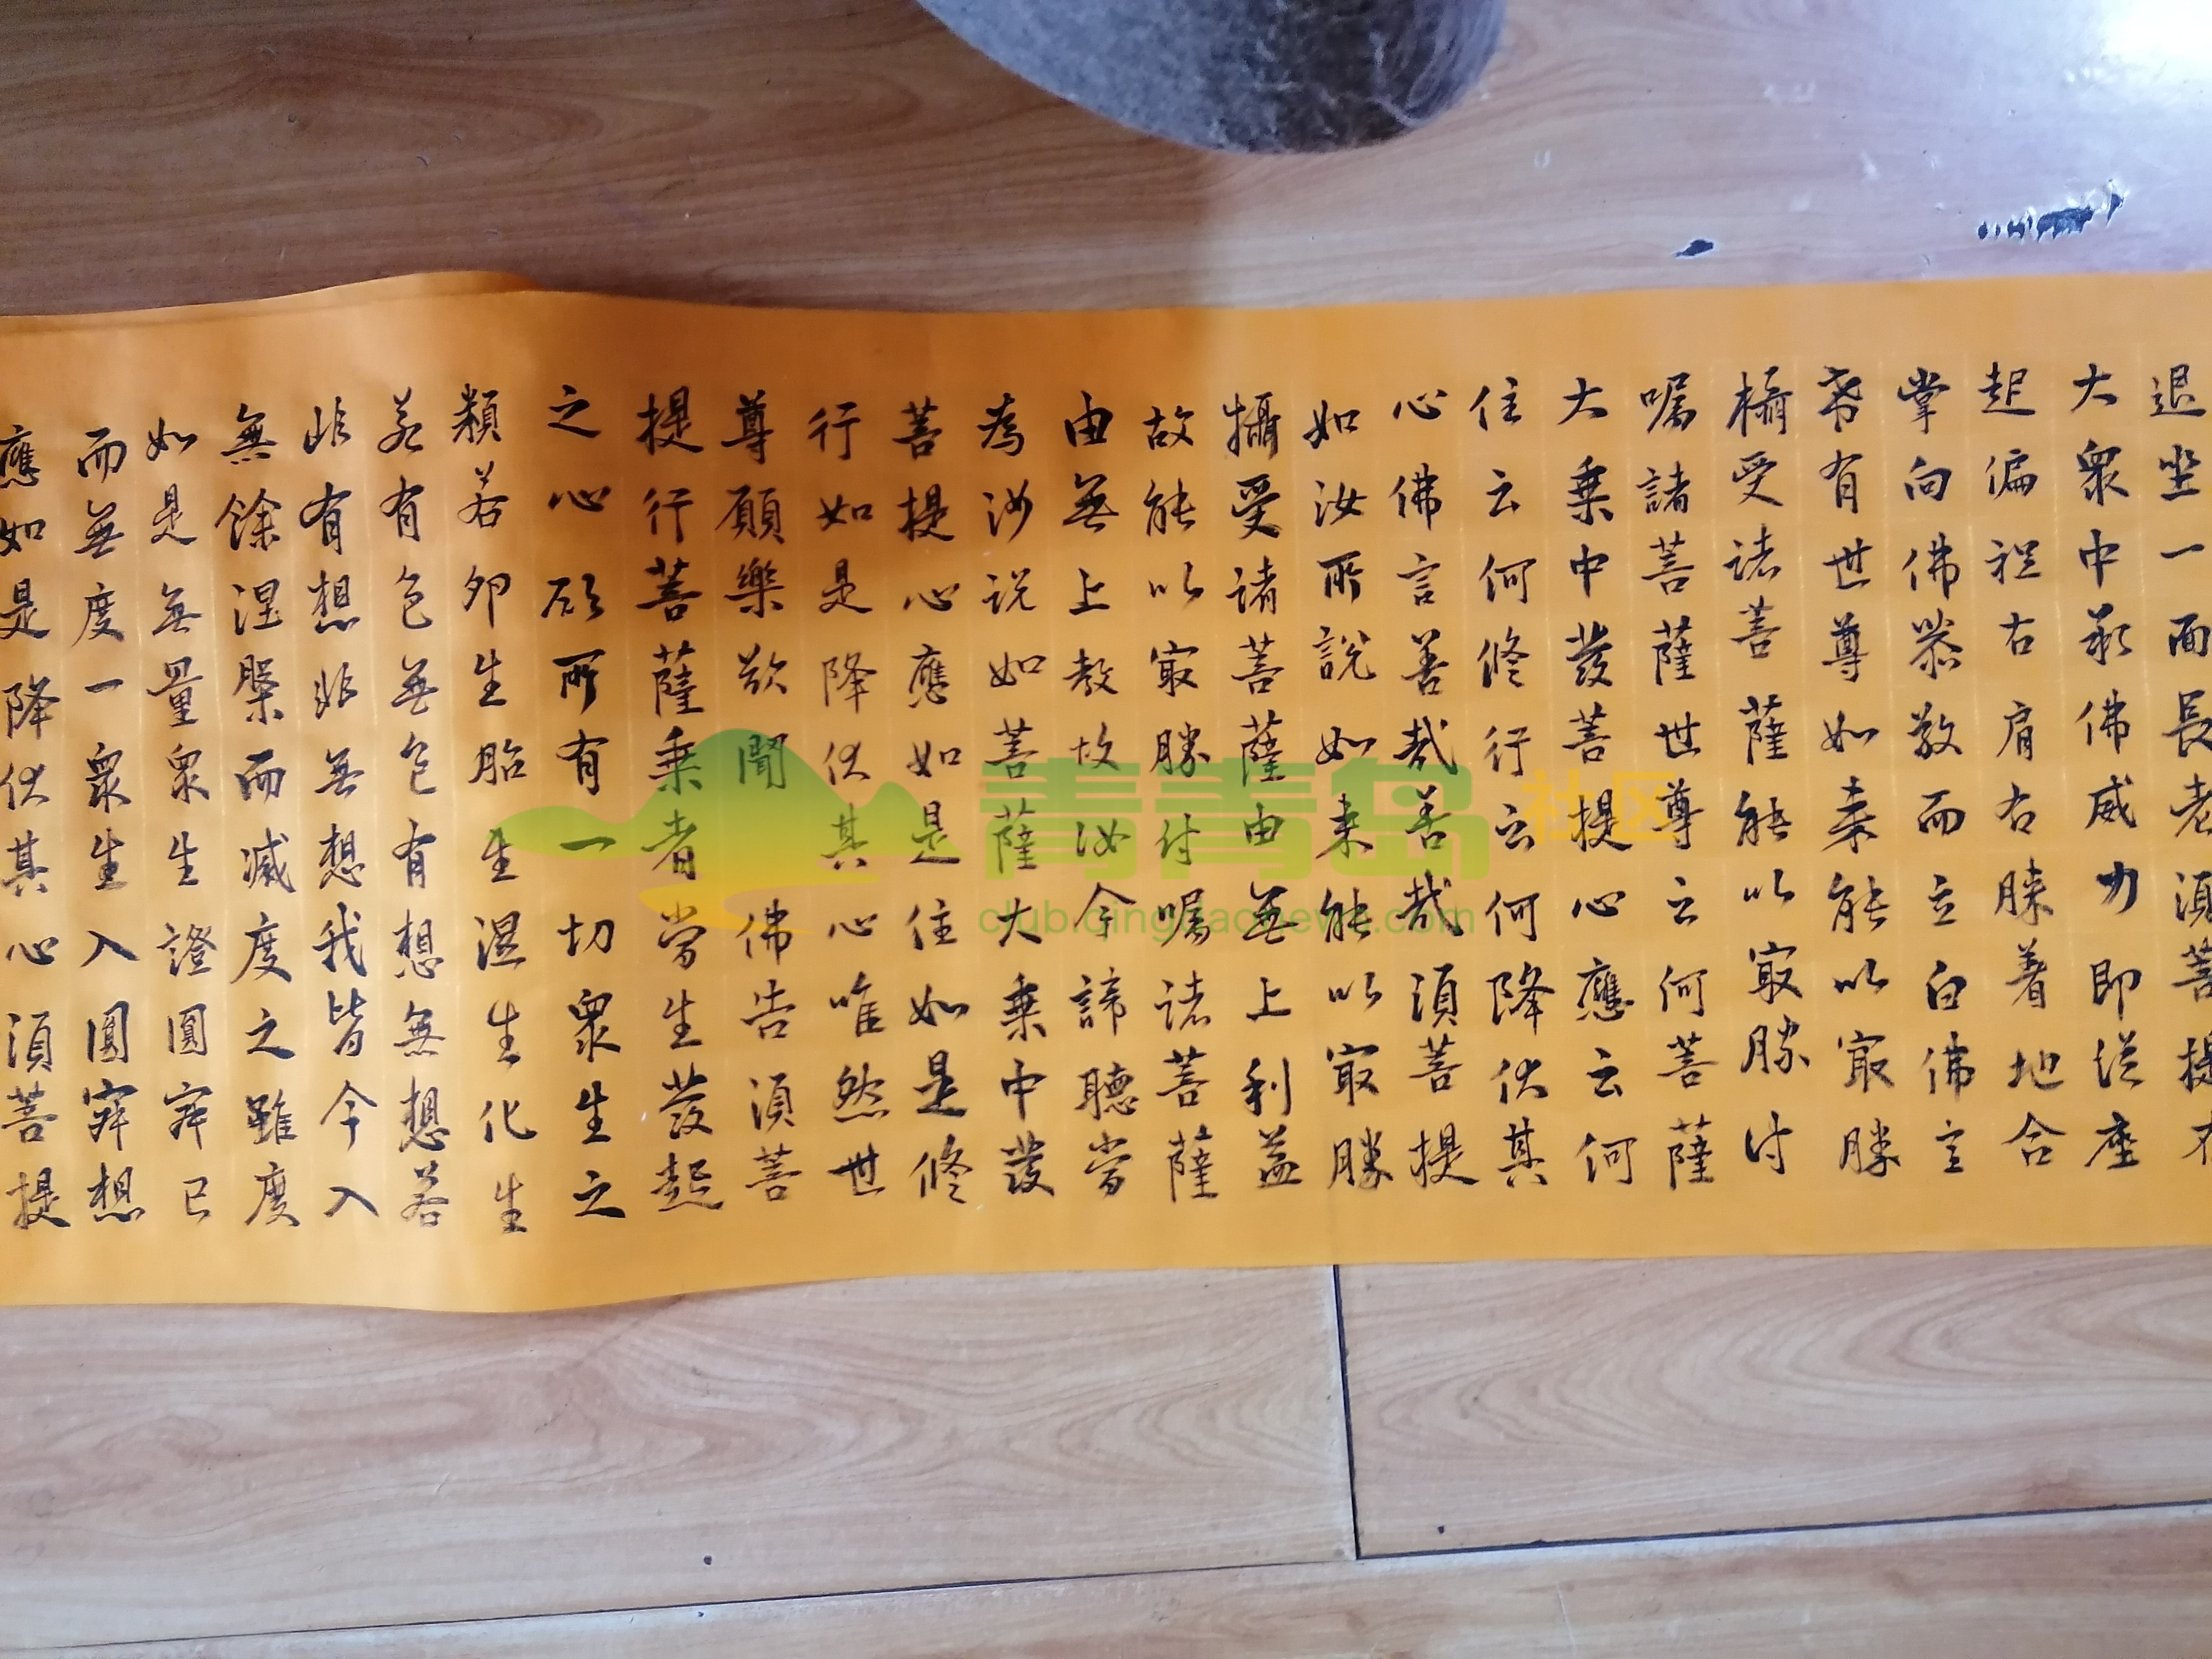 退坐一面長老須菩提在
大衆中承佛威力即從座
起偏袒右肩右膝着地合
掌向佛恭敬而立白佛言
希有世尊如來能以最勝
攝受諸菩薩能以最勝付
囑諸菩薩世尊云何菩薩
大乗中發菩提心應云何
住云何修行云何降伏其
心佛言善哉善哉須菩提
如汝所說如來能以最勝
攝受諸菩薩由無上利益
故能以最勝付囑諸菩薩
由無上教故汝今諦聽當
為汝説如菩薩大乗中發
菩提心應如是住如是修
行如是降伏其心唯然世
尊願樂欲聞佛告須菩
提行菩薩乗者當生發起
之心所有一切衆生之
類若卵生胎生濕生化生
若有色無色有想無想若
非有想非無想我皆今入
無餘涅槃而滅度之雖度
如是無量衆生證圓寂已
而無度一衆生入圓寂想
應如是降伏其心須菩提
青青岛社区
club.qingdaonews.com